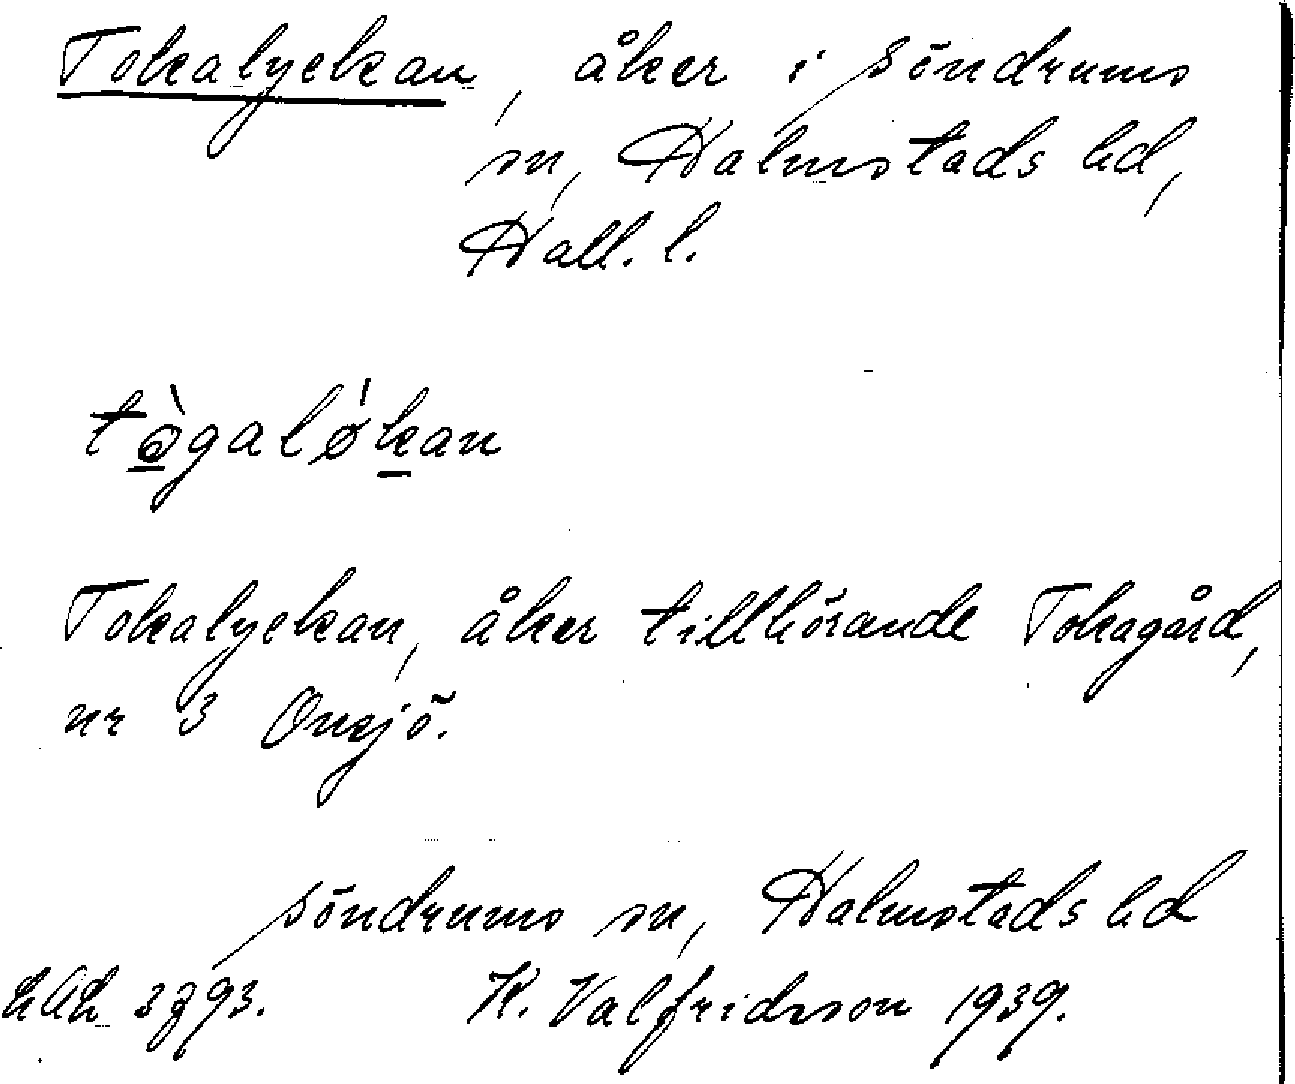 Tokalyckan, åker i Söndrums
sn, Halmstads hd,
Hall. l.
tògaløkan
Tokalyckan, åker tillhörande Tokagård,
nr 3 Onsjö.
Söndrums sn, Halmstads hd
K. Valfridsson 1939.